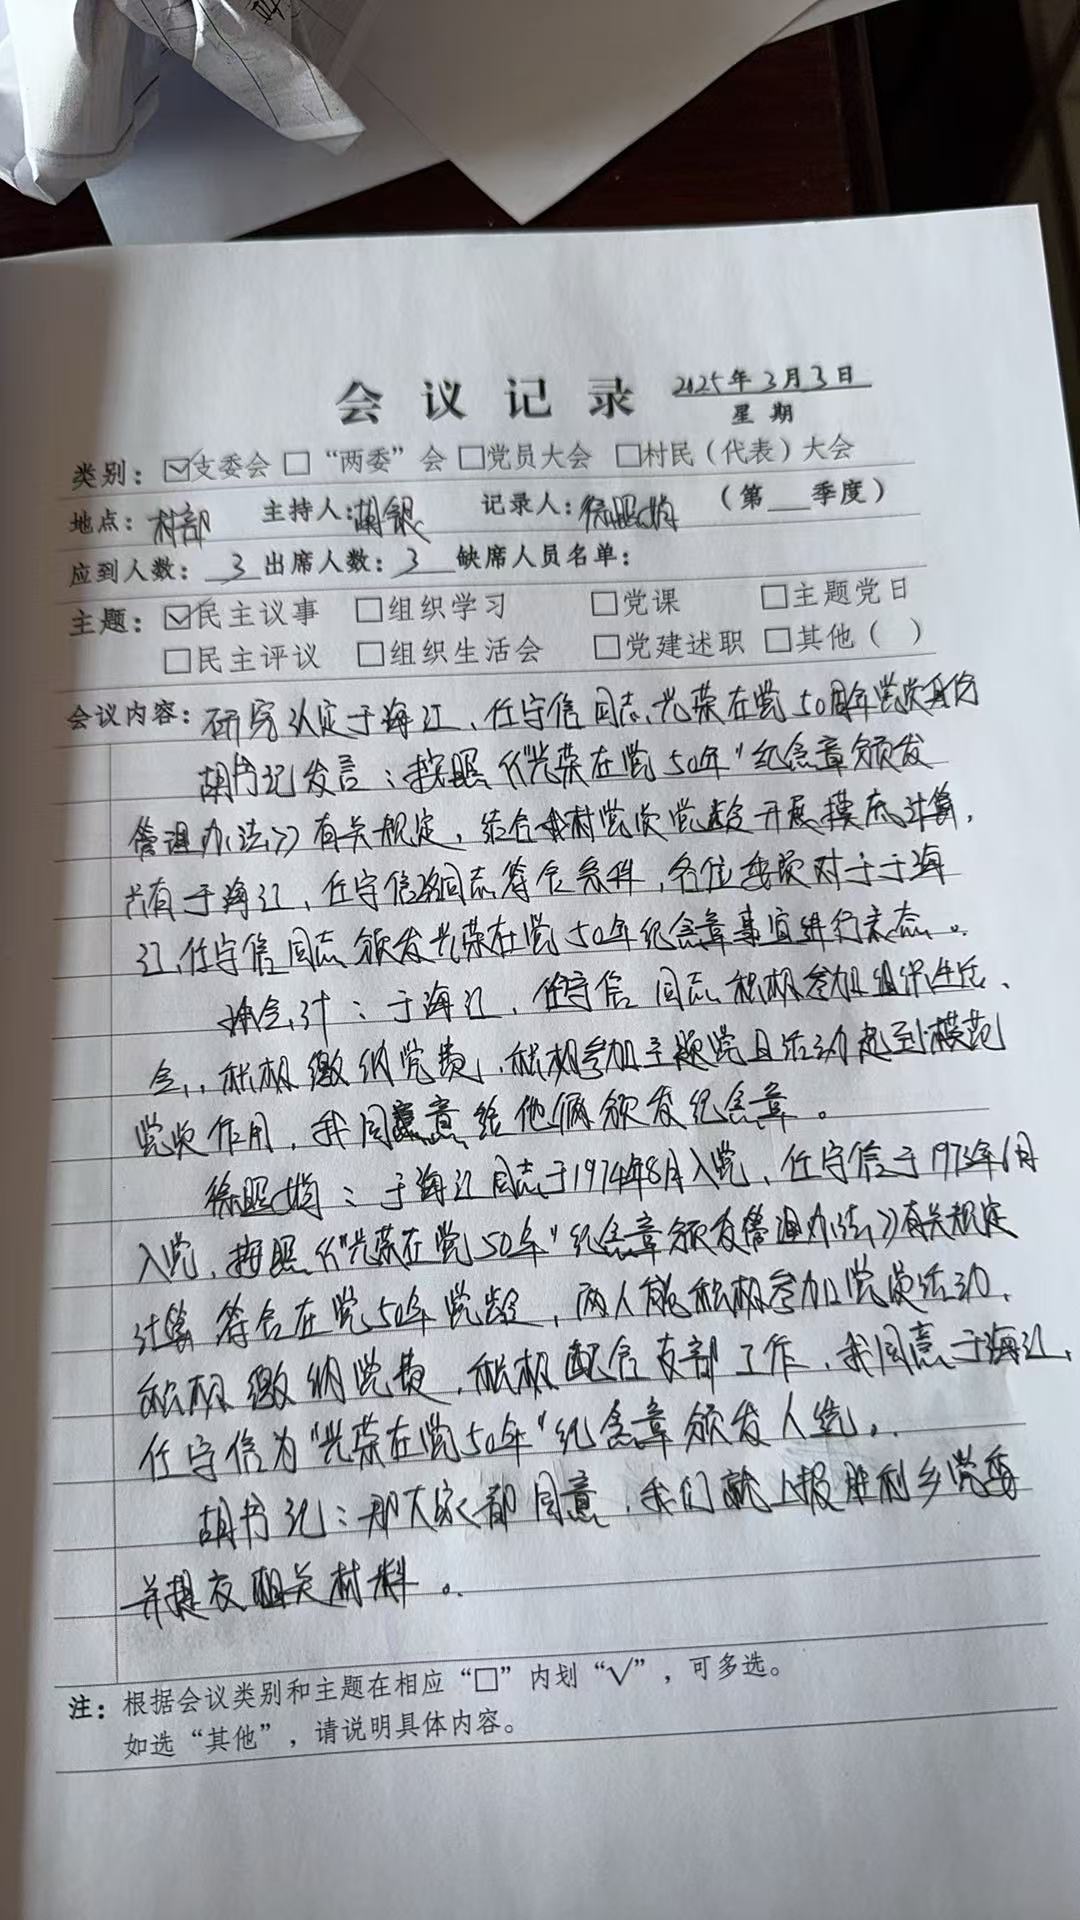 会议记录 2025年3月3日
星期
类别：☑支委会 □“两委”会 □党员大会 □村民（代表）大会
地点：村部 主持人：胡银 记录人：徐照娟 （第 季度）
应到人数：3 出席人数：3 缺席人员名单：
主题：☑民主议事 □组织学习 □党课 □主题党日
□民主评议 □组织生活会 □党建述职 □其他（ ）
会议内容：研究认定于海江、任守信同志光荣在党50周年党员身份
胡书记发言：按照《“光荣在党50年”纪念章颁发
管理办法》有关规定，结合我村党员党龄开展摸底计算，
只有于海江、任守信同志符合条件，各位委员对于于海
江、任守信同志颁发光荣在党50年纪念章事宜进行表态。
会计：于海江、任守信同志积极参加组织生活
会，积极缴纳党费，积极参加主题党日活动起到模范
党员作用，我同意给他俩颁发纪念章。
徐照娟：于海江同志于1974年8月入党，任守信于1973年6月
入党，按照《“光荣在党50年”纪念章颁发管理办法》有关规定
计算符合在党50年党龄，两人能积极参加党员活动，
积极缴纳党费，积极配合支部工作，我同意于海江、
任守信为“光荣在党50年”纪念章颁发人选。
胡书记：那大家都同意，我们就上报胜利乡党委
并提交相关材料。
注：根据会议类别和主题在相应“□”内划“√”，可多选。
如选“其他”，请说明具体内容。